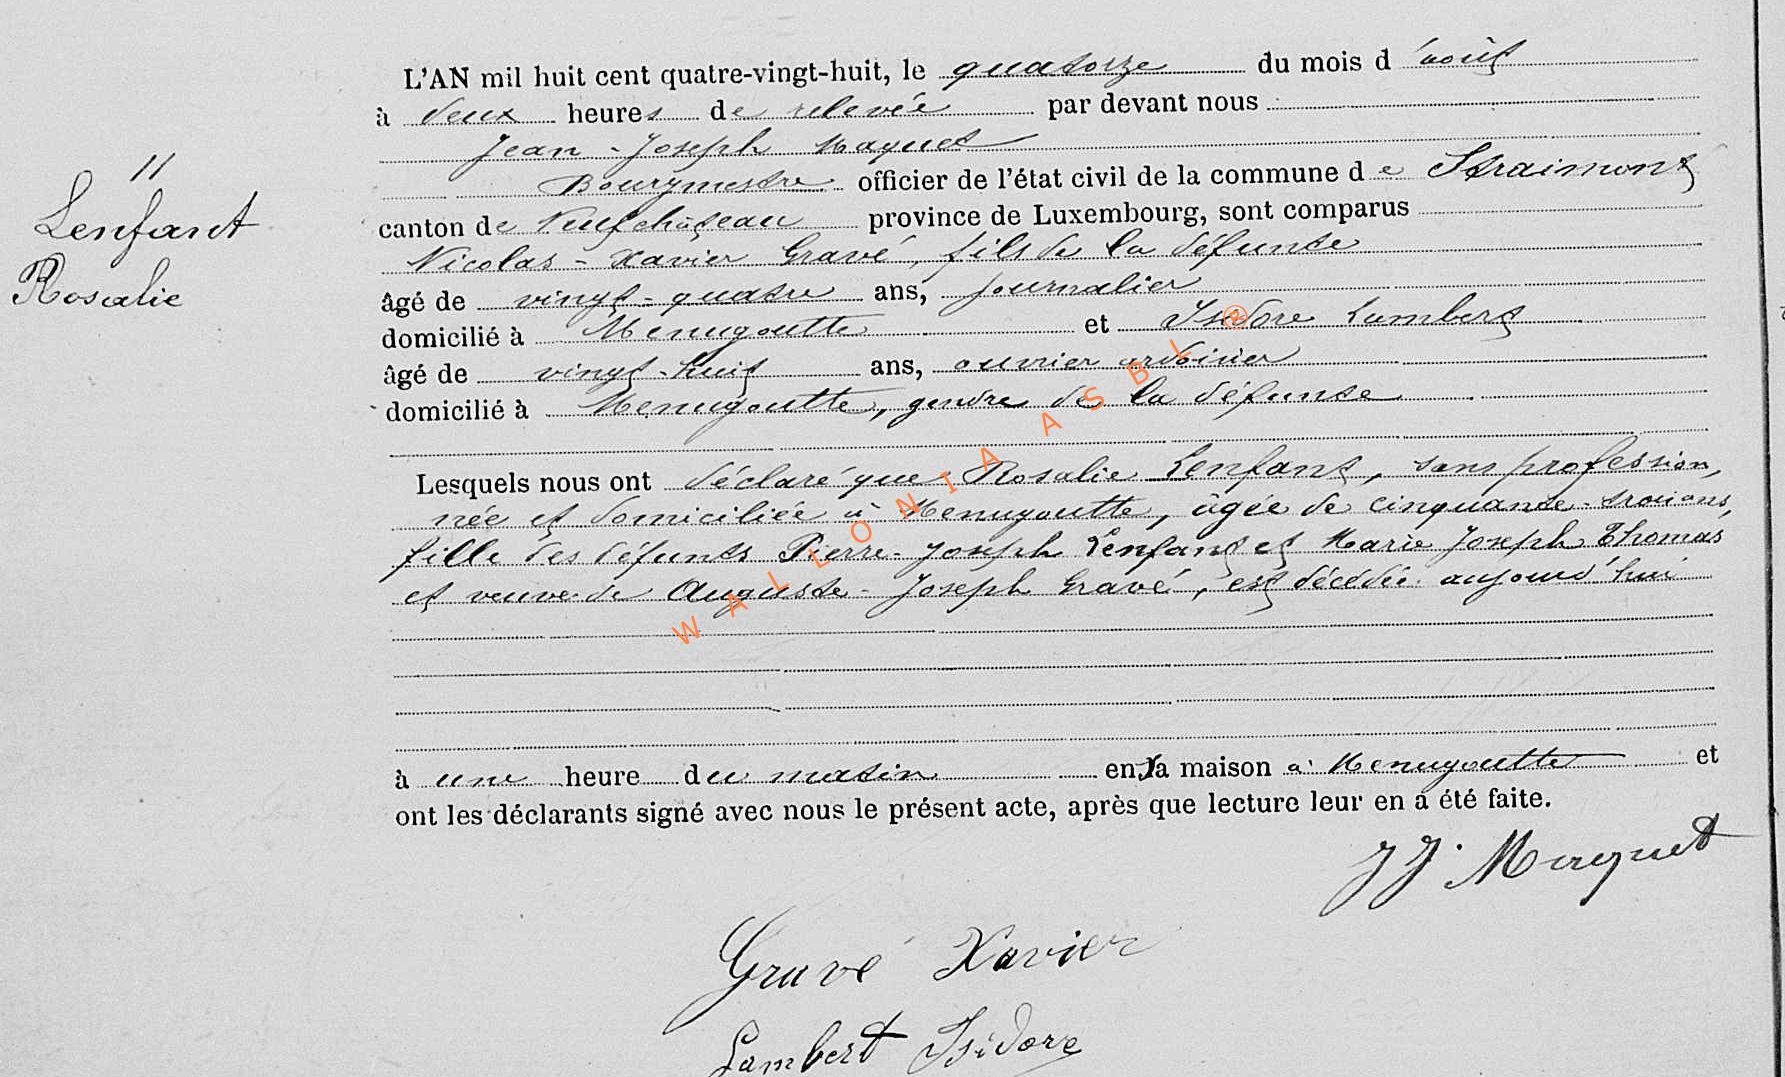 11
Lenfant
Rosalie
L'AN mil huit cent quatre-vingt-huit, le quatorze du mois d'août
à deux heures de relevée par devant nous
Jean-Joseph Maquet
Bourgmestre officier de l'état civil de la commune de Straimont
canton de Neufchâteau province de Luxembourg, sont comparus
Nicolas-Xavier Gravé, fils de la défunte
âgé de vingt-quatre ans, journalier
domicilié à Menugoutte et Isidore Lambert
âgé de vingt-huit ans, ouvrier ardoisier
domicilié à Menugoutte, gendre de la défunte
Lesquels nous ont déclaré que Rosalie Lenfant, sans profession,
née et domiciliée à Menugoutte, âgée de cinquante-trois ans,
fille des défunts Pierre-Joseph Lenfant et Marie Joseph Thomas
et veuve de Auguste-Joseph Gravé, est décédée aujourd'hui
à une heure du matin en sa maison à Menugoutte et
ont les déclarants signé avec nous le présent acte, après que lecture leur en a été faite.
JJ. Maquet
Gravé Xavier
Lambert Isidore
WALLONIA ASBL ®